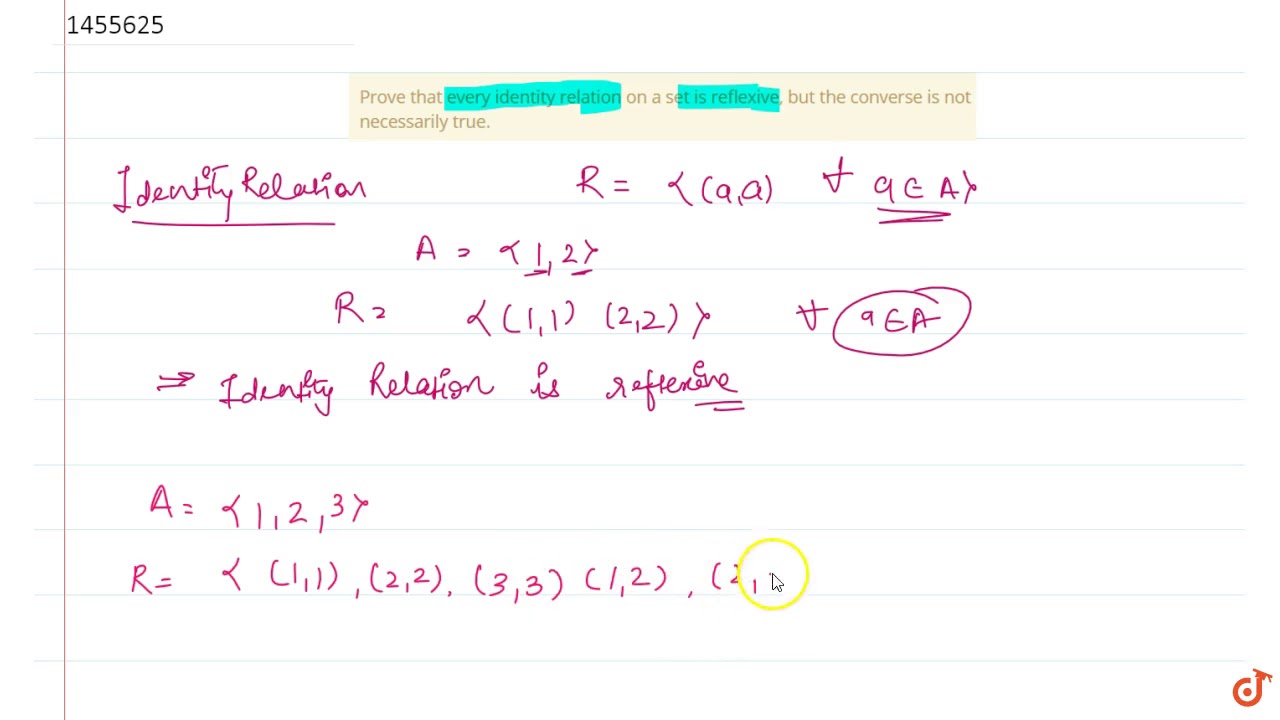 1455625
Prove that every identity relation on a set is reflexive, but the converse is not
necessarily true.
Identity Relation R = {(a,a) ∀ a ∈ A}
A = {1,2}
R = {(1,1) (2,2)} ∀ a ∈ A
⇒ Identity Relation is reflexive
A = {1,2,3}
R = { (1,1), (2,2), (3,3) (1,2), (2,